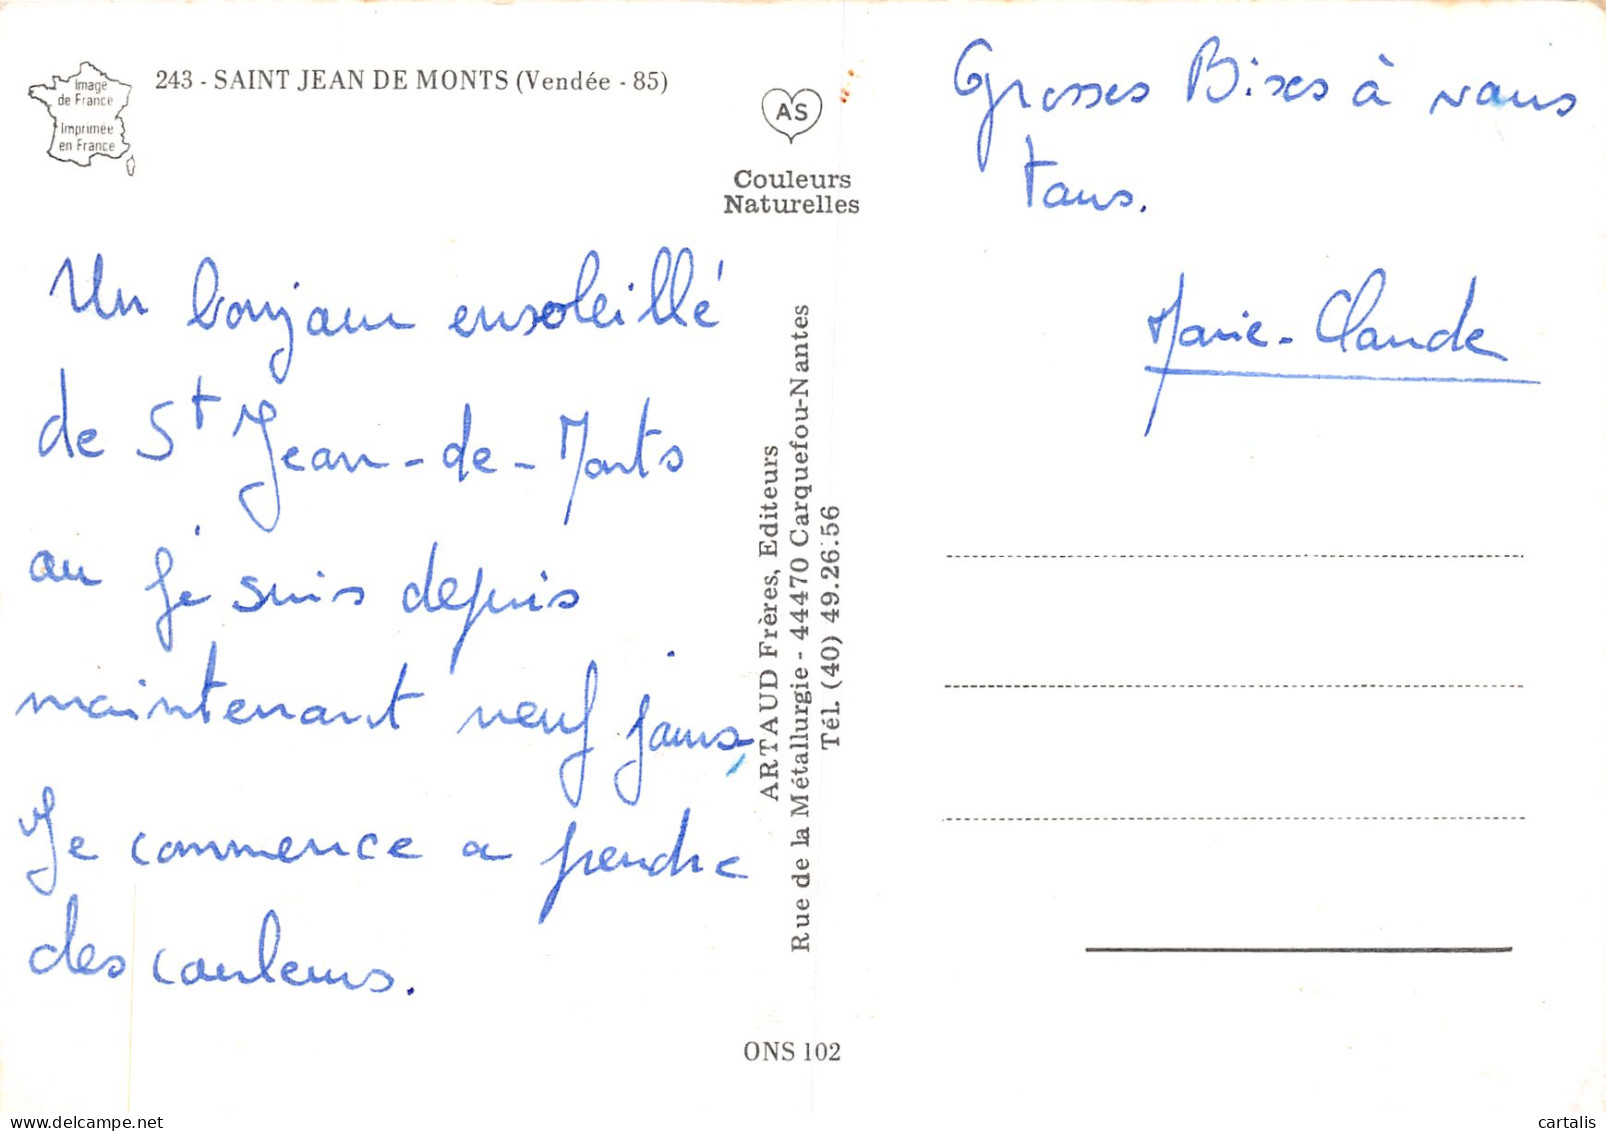 Image
de France
Imprimée
en France
243 - SAINT JEAN DE MONTS (Vendée - 85)
AS
Couleurs
Naturelles
Un bonjour ensoleillé
de St Jean-de-Monts
ou je suis depuis
maintenant neuf jours,
Je commence a prendre
des couleurs.
ARTAUD Frères, Editeurs
Rue de la Métallurgie - 44470 Carquefou-Nantes
Tél. (40) 49.26.56
ONS 102
Grosses Bises à vous
tous.
Marie-Claude
delcampe.net
cartalis